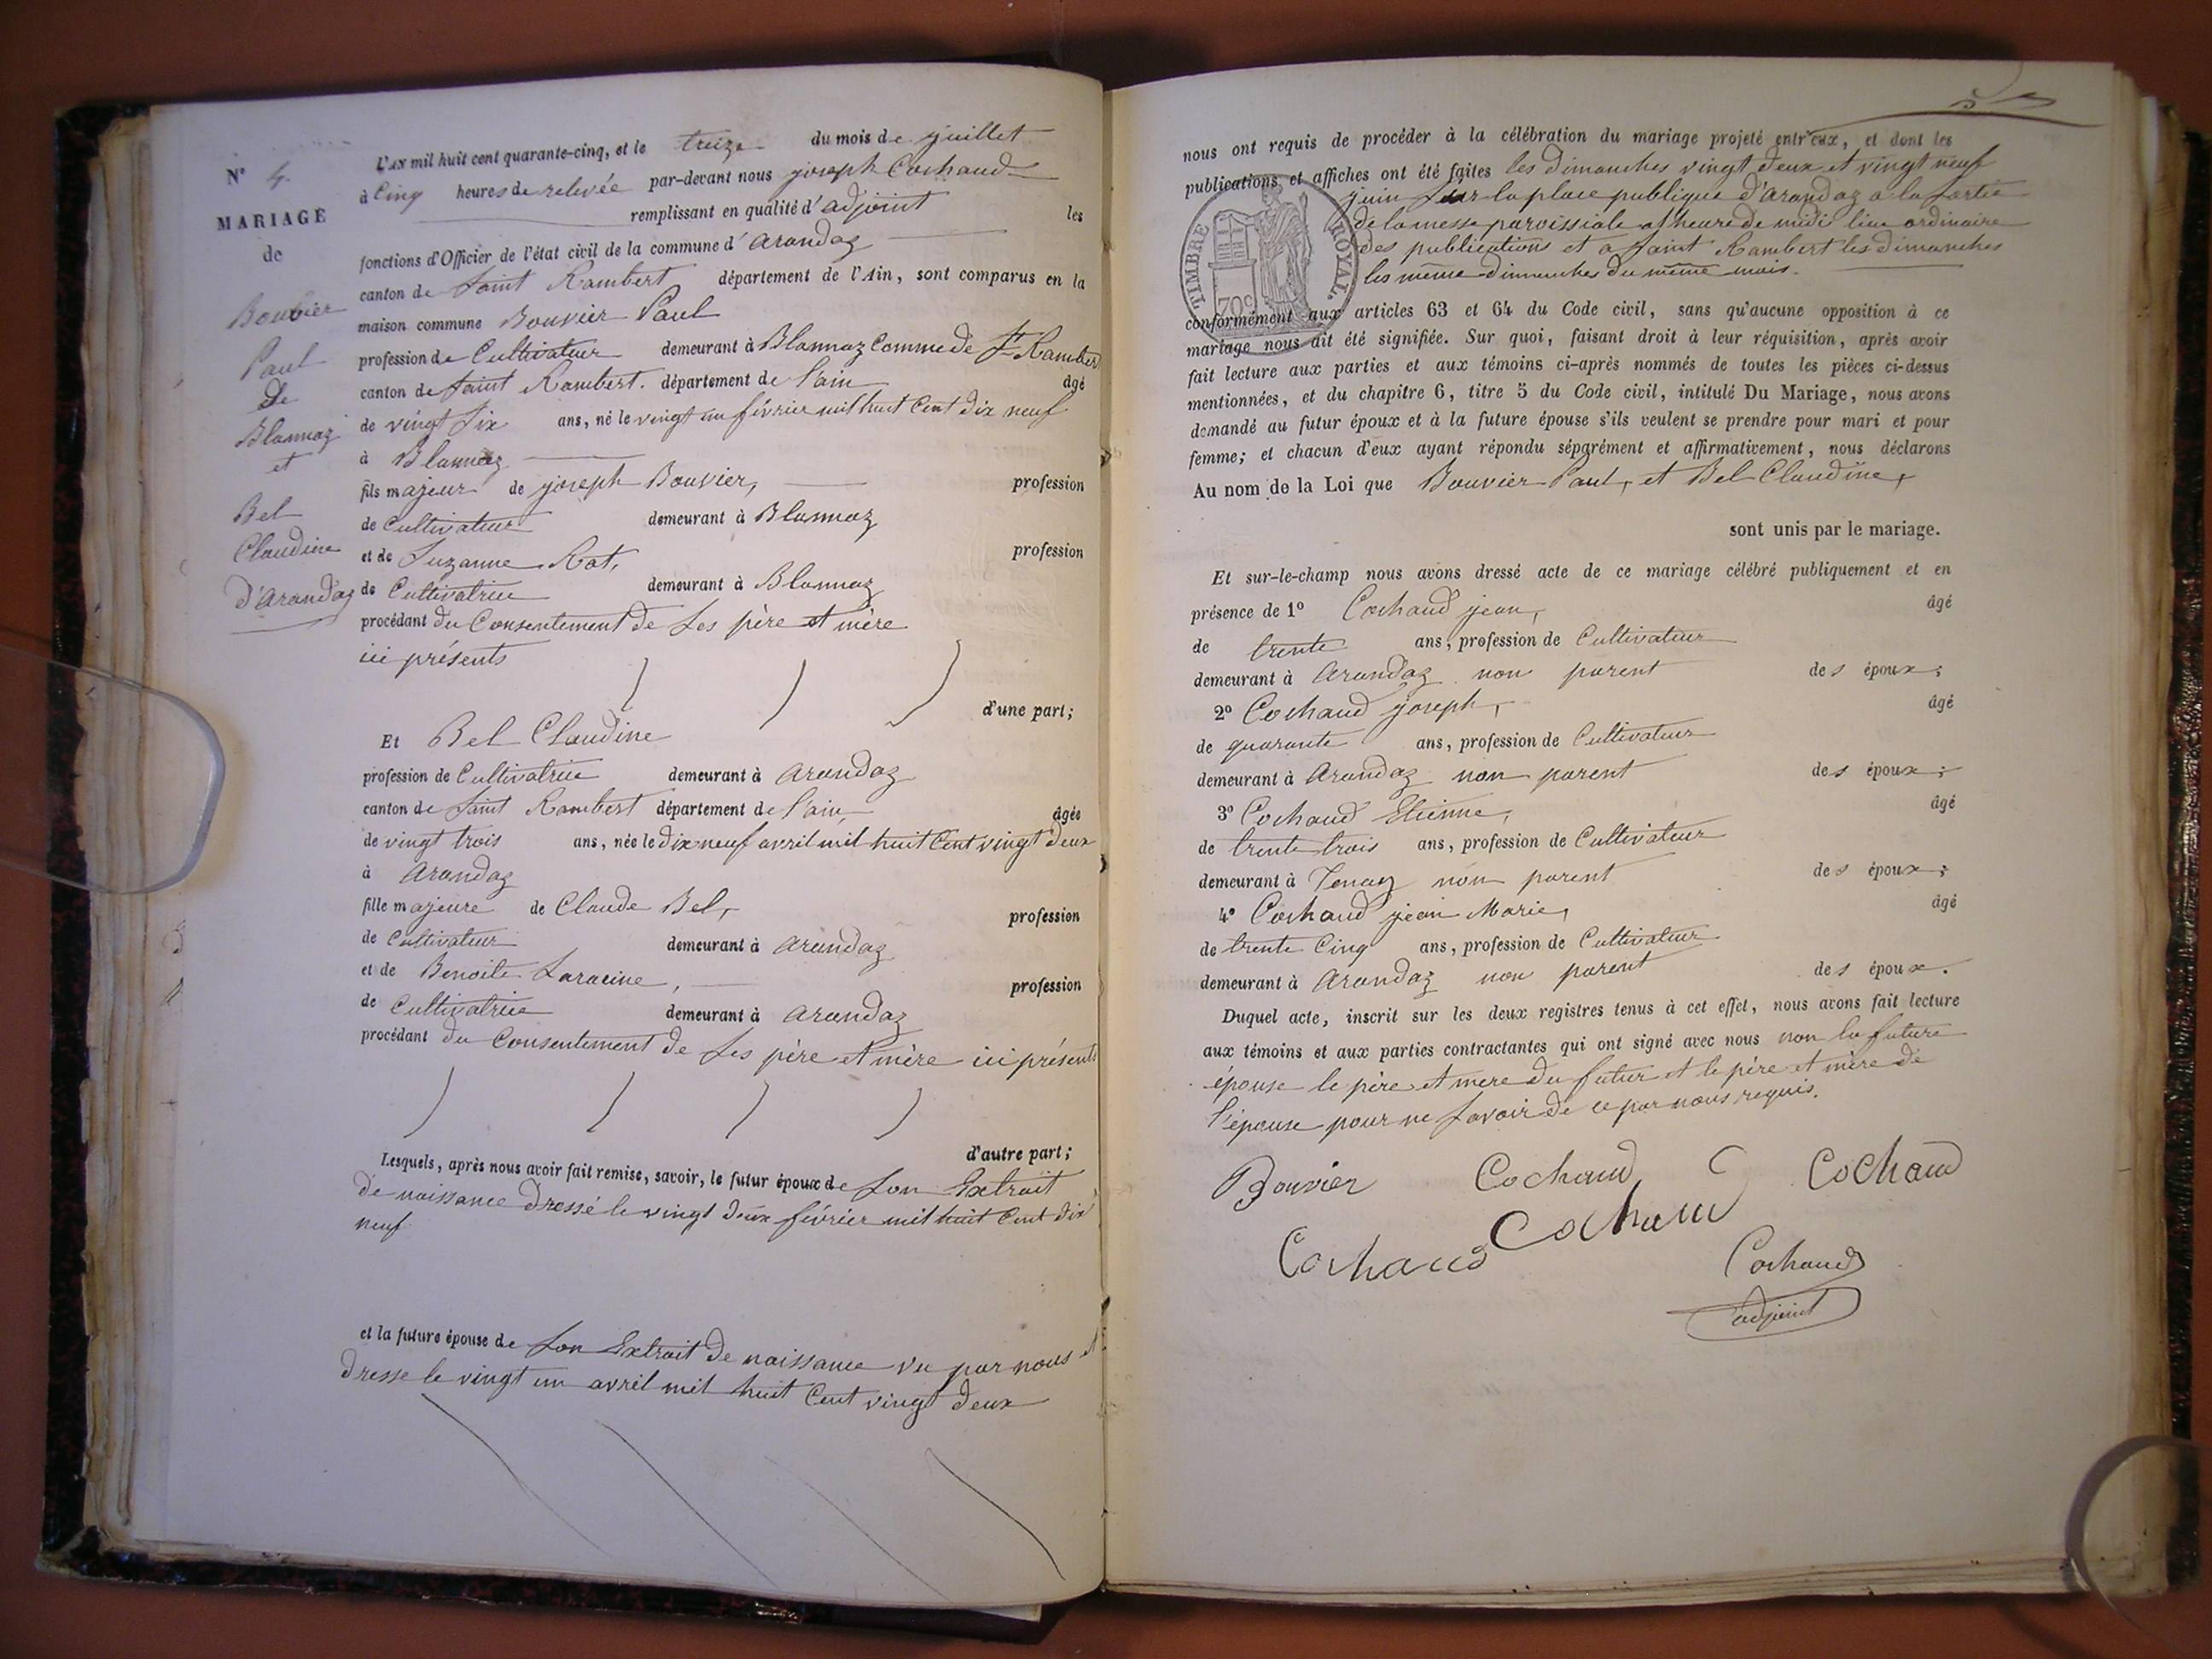 N° 4.
MARIAGE
de
Bouvier
Paul
de
Blannaz
et
Bel
Claudine
d'Arandaz
L'AN mil huit cent quarante-cinq, et le treize du mois de juillet
à Cinq heures de relevée par-devant nous joseph Cochaud
remplissant en qualité d'adjoint les
fonctions d'Officier de l'état civil de la commune d'Arandaz
canton de Saint Rambert département de l'Ain, sont comparus en la
maison commune Bouvier Paul
profession de Cultivateur demeurant à Blannaz Comme de St Rambert
canton de Saint Rambert. département de l'ain âgé
de vingt Six ans, né le vingt un février mil huit Cent dix neuf
à Blannaz
fils majeur de joseph Bouvier, profession
de Cultivateur demeurant à Blannaz
et de Suzanne Rat, profession
de Cultivatrice demeurant à Blannaz
procédant du Consentement de Ses père et mère
ici présents
d'une part;
Et Bel Claudine
profession de Cultivatrice demeurant à Arandaz
canton de Saint Rambert département de l'ain âgée
de vingt trois ans, née le dix neuf avril mil huit Cent vingt deux
à Arandaz
fille majeure de Claude Bel, profession
de Cultivateur demeurant à Arandaz
et de Benoite Laracine, profession
de Cultivatrice demeurant à Arandaz
procédant du Consentement de Ses père et mère ici présents
d'autre part;
Lesquels, après nous avoir fait remise, savoir, le futur époux de Son Extrait
de naissance dressé le vingt deux février mil huit Cent dix
neuf
et la future épouse de Son Extrait de naissance vu par nous et
dresse le vingt un avril mil huit Cent vingt deux
nous ont requis de procéder à la célébration du mariage projeté entr'eux, et dont les
publications et affiches ont été faites les dimanches vingt deux et vingt neuf
juin Sur la place publique d'Arandaz a la Sortie
de la messe paroissiale a l'heure de midi lieu ordinaire
des publications et a Saint Rambert les dimanches
les même dimanches du même mois.
TIMBRE ROYAL.
70c
conformément aux articles 63 et 64 du Code civil, sans qu'aucune opposition à ce
mariage nous ait été signifiée. Sur quoi, faisant droit à leur réquisition, après avoir
fait lecture aux parties et aux témoins ci-après nommés de toutes les pièces ci-dessus
mentionnées, et du chapitre 6, titre 5 du Code civil, intitulé Du Mariage, nous avons
demandé au futur époux et à la future épouse s'ils veulent se prendre pour mari et pour
femme; et chacun d'eux ayant répondu séparément et affirmativement, nous déclarons
Au nom de la Loi que Bouvier Paul, et Bel Claudine,
sont unis par le mariage.
Et sur-le-champ nous avons dressé acte de ce mariage célébré publiquement et en
présence de 1° Cochaud jean, âgé
de trente ans, profession de Cultivateur
demeurant à Arandaz non parent des époux;
2° Cochaud joseph, âgé
de quarante ans, profession de Cultivateur
demeurant à Arandaz non parent des époux;
3° Cochaud Etienne, âgé
de trente trois ans, profession de Cultivateur
demeurant à Tenay non parent des époux;
4° Cochaud jean Marie, âgé
de trente Cinq ans, profession de Cultivateur
demeurant à Arandaz non parent des époux.
Duquel acte, inscrit sur les deux registres tenus à cet effet, nous avons fait lecture
aux témoins et aux parties contractantes qui ont signé avec nous non la future
épouse le père et mere du futur et le père et mère de
l'épouse pour ne Savoir de ce par nous requis.
Bouvier Cochaud C Cochaud
Cochaud Cochaud
Cochaud
adjoint